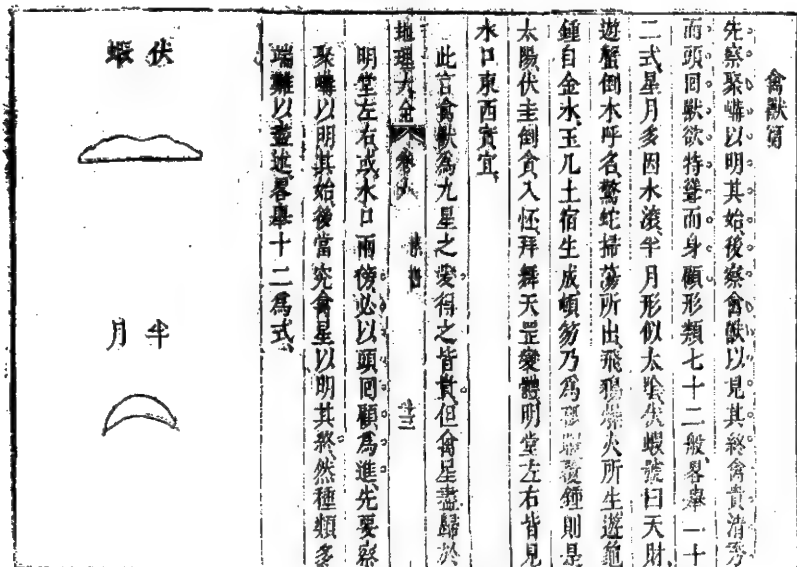 禽獸篇
先察聚講以明其始後察禽獸以見其終禽貴清秀
而頭回獸欲特聳而身顧形類七十二般畧舉一十
二式星月多因水滾半月形似太陰伏蝦號曰天財
遊蟹倒水呼名驚蛇掃蕩所出飛鴉燥火所生遊龜
鍾自金水玉几土宿生成頓笏乃爲覆鍾則是
太陽伏圭倒貪入怀拜舞天罡變體明堂左右皆見
水口東西實宜
此言禽獸為九星之愛得之皆貴但禽星盡歸於
地理大全 卷八 十三
明堂左右或水口兩傍必以頭回顧為進先要察
聚講以明其始後當究禽星以明其終然種類多
端難以盡述畧舉十二爲式
伏蝦
半月